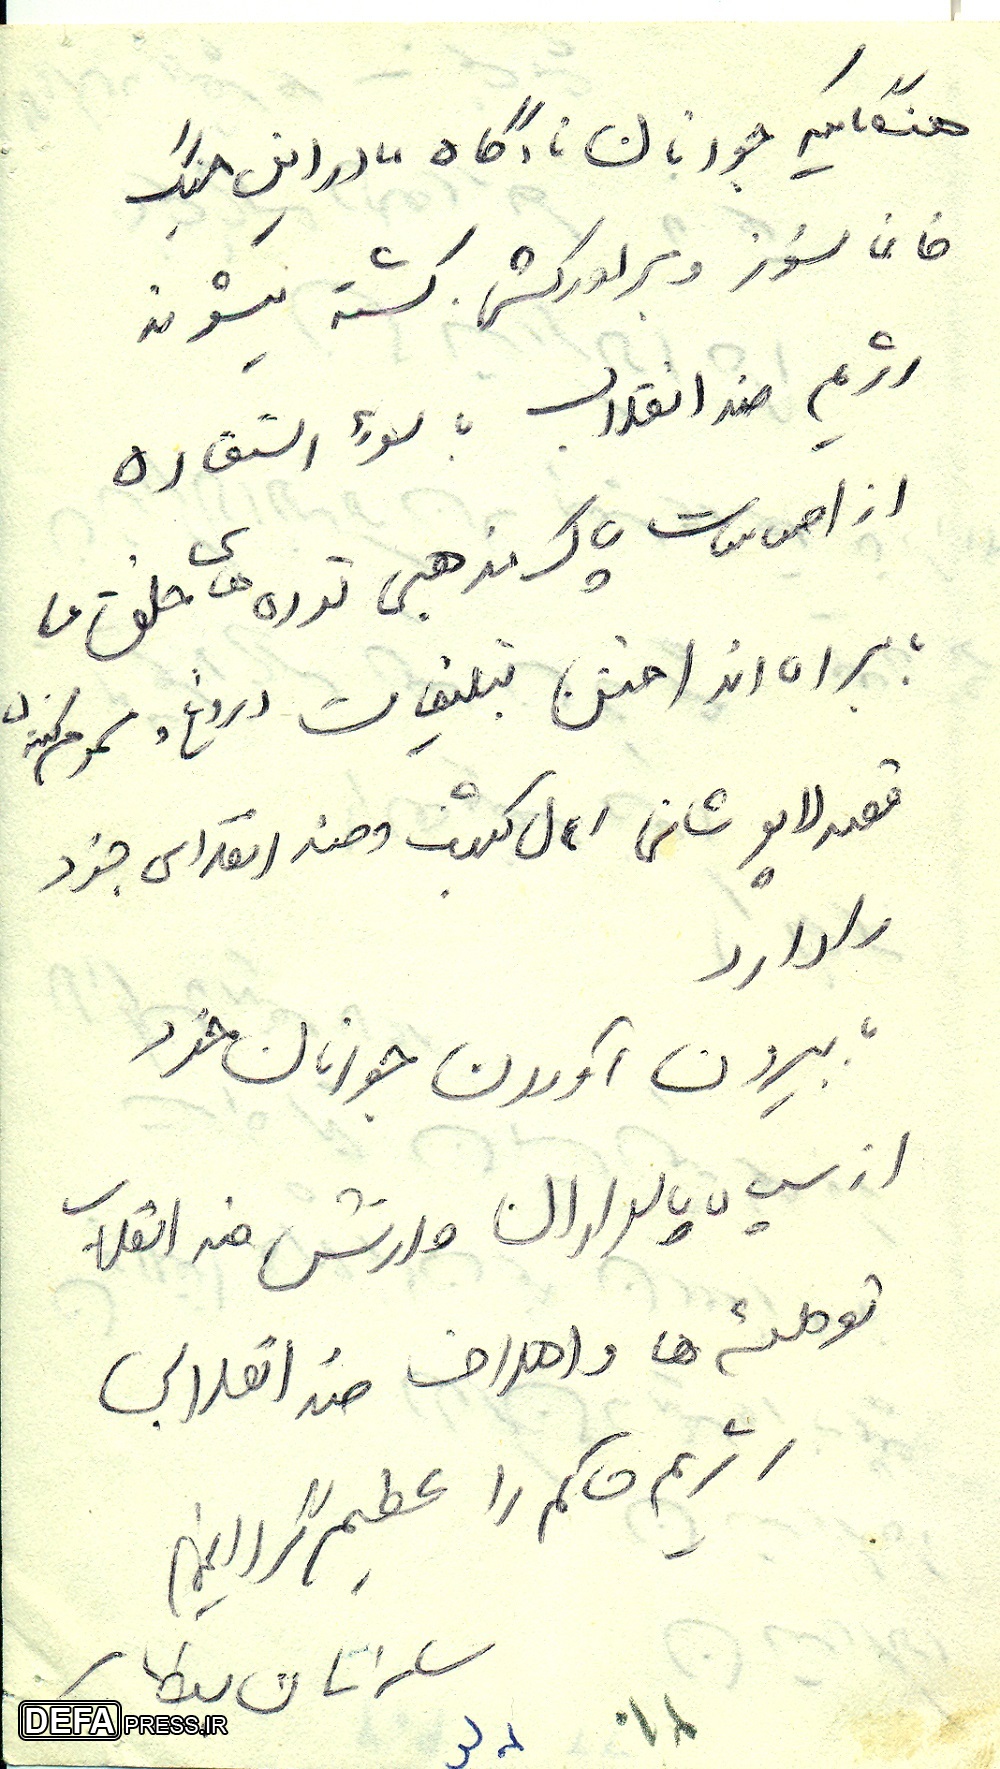 هنگامیکه جوانان ناآگاه ما در این جنگ
خانمانسوز و برادرکشی کشته میشوند
رژیم ضد انقلاب با سوء استفاده
از احساسات پاک مذهبی توده های خلق ما
با براه انداختن تبلیغات دروغ و مسموم کننده
قصد لاپوشانی اعمال کثیف و ضد انقلابی خود
را دارد
با بیرون آوردن جوانان خود
از سپاه پاسداران و ارتش ضد انقلاب
توطئه ها و اهداف ضد انقلابی
رژیم حاکم را عظیم گردانیم
DEFAPRESS.IR